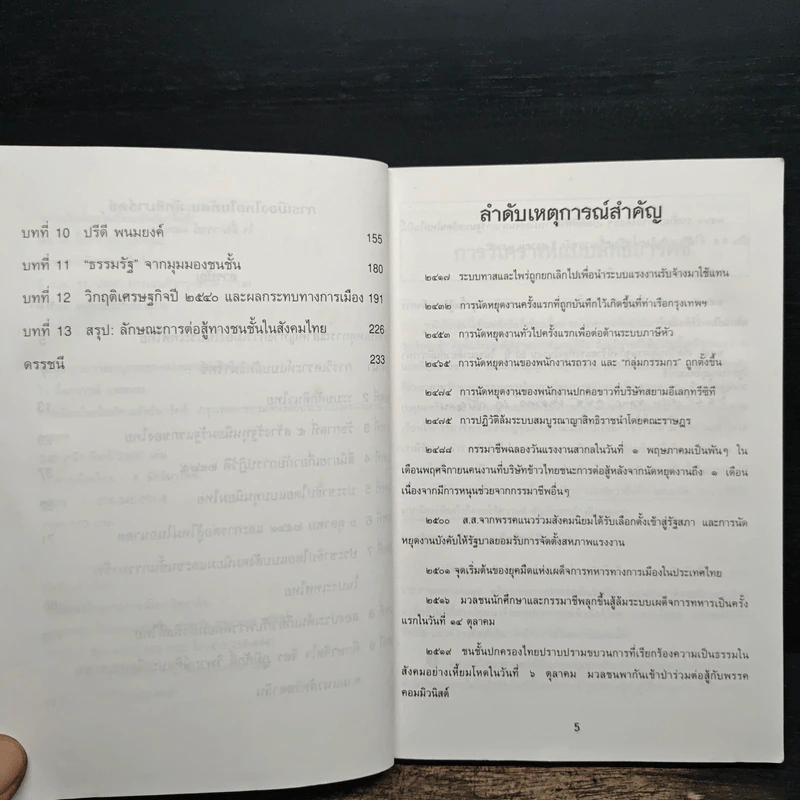 บทที่ 10 ปรีดี พนมยงค์ 155
บทที่ 11 "ธรรมรัฐ" จากมุมมองชนชั้น 180
บทที่ 12 วิกฤติเศรษฐกิจปี ๒๕๔๐ และผลกระทบทางการเมือง 191
บทที่ 13 สรุป: ลักษณะการต่อสู้ทางชนชั้นในสังคมไทย 226
ดรรชนี 233
ลำดับเหตุการณ์สำคัญ
๒๔๑๗ ระบบทาสและไพร่ถูกยกเลิกไปเพื่อนำระบบแรงงานรับจ้างมาใช้แทน
๒๔๓๒ การนัดหยุดงานครั้งแรกที่ถูกบันทึกไว้เกิดขึ้นที่ท่าเรือกรุงเทพฯ
๒๔๕๓ การนัดหยุดงานทั่วไปครั้งแรกเพื่อต่อต้านระบบภาษีหัว
๒๔๖๕ การนัดหยุดงานของพนักงานรถราง และ "กลุ่มกรรมกร" ถูกตั้งขึ้น
๒๔๗๔ การนัดหยุดงานของพนักงานปกคอขาวที่บริษัทสยามอีเลกทรีซิที
๒๔๗๕ การปฏิวัติล้มระบบสมบูรณาญาสิทธิราชนำโดยคณะราษฎร
๒๔๘๘ กรรมาชีพฉลองวันแรงงานสากลในวันที่ ๑ พฤษภาคมเป็นพันๆ ใน
เดือนพฤศจิกายนคนงานที่บริษัทข้าวไทยชนะการต่อสู้หลังจากนัดหยุดงานถึง ๑ เดือน
เนื่องจากมีการหนุนช่วยจากกรรมาชีพอื่นๆ
๒๕๐๐ ส.ส.จากพรรคแนวร่วมสังคมนิยมได้รับเลือกตั้งเข้าสู่รัฐสภา และการนัด
หยุดงานบังคับให้รัฐบาลยอมรับการจัดตั้งสหภาพแรงงาน
๒๕๐๑ จุดเริ่มต้นของยุคมืดแห่งเผด็จการทหารทางการเมืองในประเทศไทย
๒๕๑๖ มวลชนนักศึกษาและกรรมาชีพลุกขึ้นสู้ล้มระบบเผด็จการทหารเป็นครั้ง
แรกในวันที่ ๑๔ ตุลาคม
๒๕๑๙ ชนชั้นปกครองไทยปราบปรามขบวนการที่เรียกร้องความเป็นธรรมใน
สังคมอย่างเหี้ยมโหดในวันที่ ๖ ตุลาคม มวลชนพากันเข้าป่าร่วมต่อสู้กับพรรค
คอมมิวนิสต์
5